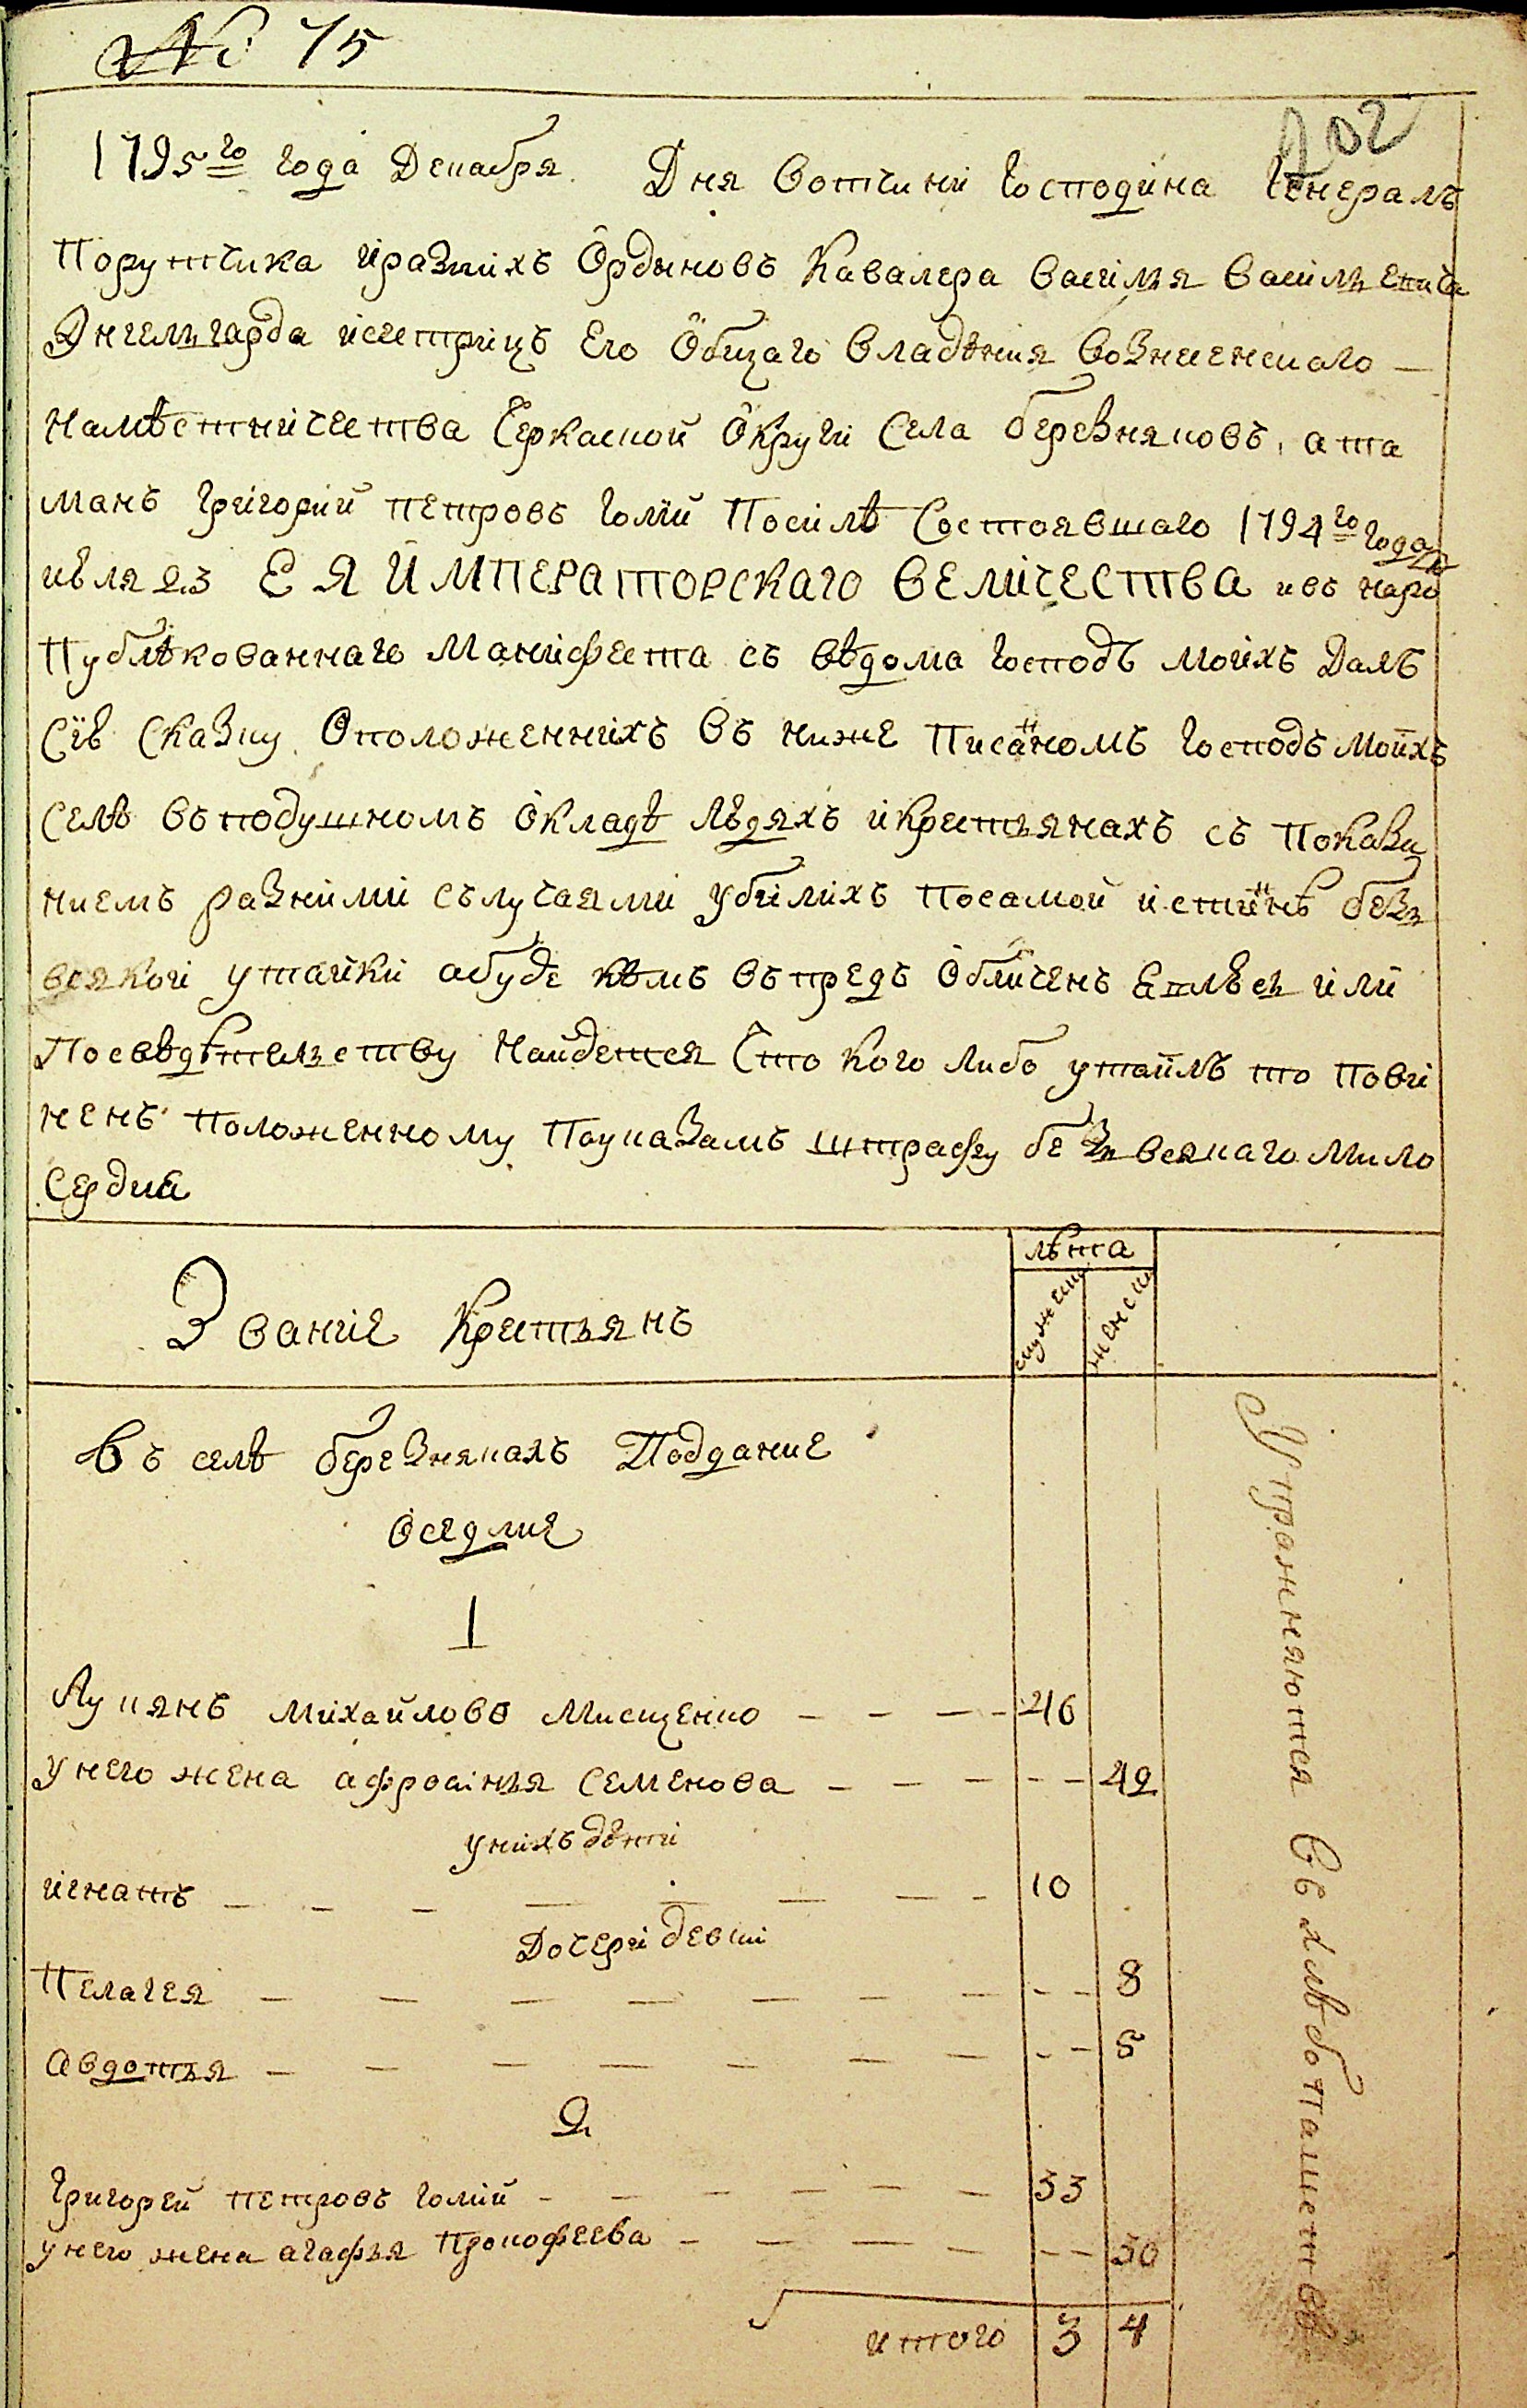 № 75
202
1795го года Декабря Дня вотчини Господина Генералъ
Порутчика иразнихъ Ордыновъ Кавалера василья василье‍вича
Энгельгарда исестрицъ Его Общаго владѣния вознесенскаго
намѣстничества Черкаской Округи Села березняковъ, ата
манъ Григорий Петровъ Голий Посилѣ Состоявшаго 1794го года
июля 23 ЕЯ ИМПЕРАТОРСКАГО ВЕЛИЧЕСТВА ивъ наро
Публѣкованнаго Манифеста съ вѣдома Господъ моихъ Далъ
Сію Сказку Оположеннихъ въ ниже Писаномъ Господъ моихъ
Селѣ въподушномъ Окладѣ людяхъ икрестьянахъ съ Показа
ниемъ разними сълучаями убилихъ Посамой истиннѣ безъ
всякои утайки абуде кѣмъ въпредъ Обличенъ или
Посвѣдѣтельству Найдется Что кого либо утаилъ то Пови
ненъ Положенному Поуказамъ штрафу безъ всякаго мило
Сердия
Звание Крестьянъ
лѣта
мужеска
женска
Въ селѣ березнякахъ Поддание
Оседлие
1
Лукянъ Михайловъ Мисщенко 46
унего жена афросинья Семенова 42
унихъ дѣти
игнатъ 10
Дочери девки
Пелагея 8
авдотья 5
2
Григорей Петровъ Голий 53
унего жена агафья Прокофеева 50
итого 3 4
Упражняются Въ хлѣбопашествѣ